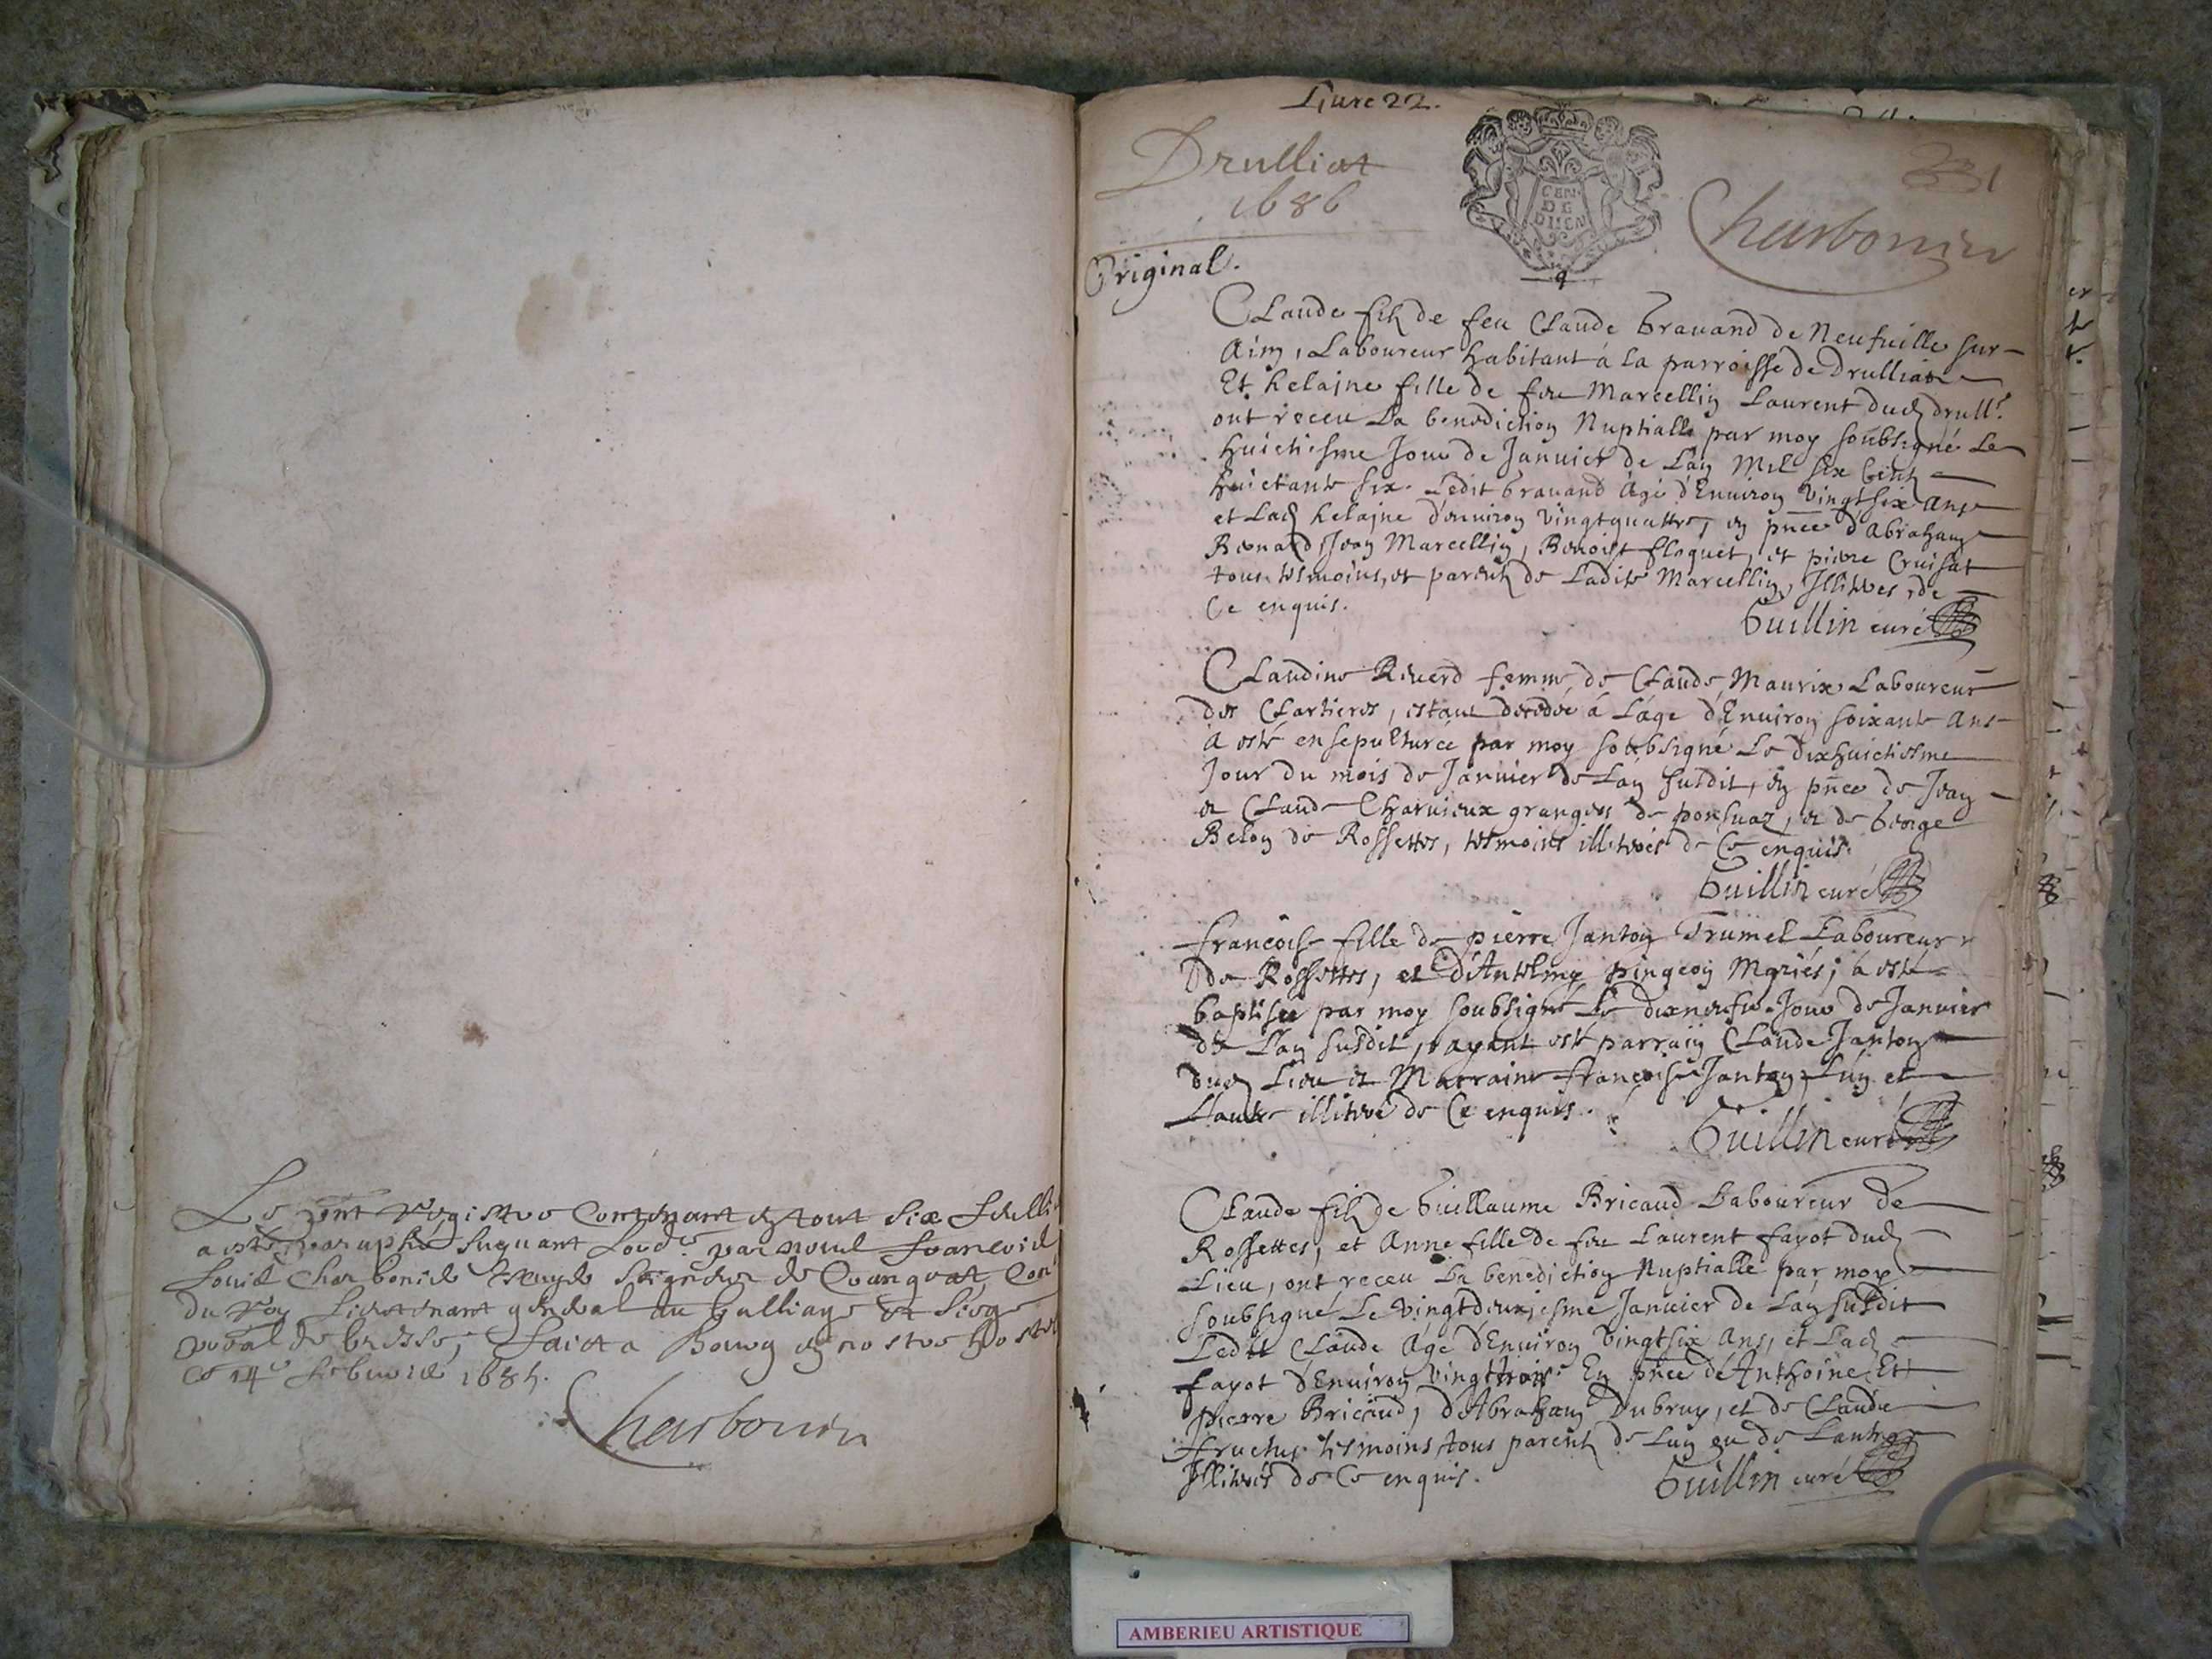 Le pnt registre contenant en tout six feuillets
a esté paraphé suyvant L'ord.ce par nous francois
Louis Charbonier Seigneur de Con.er
du Roy Lieutenant general au balliage et siege
de bresse, faict a Bourg en nostre hostel
ce 14e febvrier
Charbonier
Liure 22.
Drulliat
1686
331
Charbonier
CEN.
DE
DIION
Original.
Claude filz de feu Claude Grauand de Neufuille sur
Ain, Laboureur habitant à la parroisse de Drulliat
Et helaine fille de feu Marcellin Laurent dud drull.t
ont receu La benediction Nuptialle par moy soubsigné Le
huictiesme Jour de Januier de L'an Mil six Centz
huictante six. Ledit Grauand Agé d'Enuiron Vingtsix ans
et Lad helaine d'enuiron vingtquattre, en pnce d'Abraham
Renard, Jean Marcellin, Benoist floquet, et pierre Cruisat
tous tesmoins, et parentz de Ladite Marcellin, Illitrés, de
Ce enquis.
Guillin curé
Claudine Riuerd femme de Claude Maurix Laboureur
des Clartieres, estant decedée à L'age d'Enuiron soixante ans
A esté ensepulturée par moy soubsigné Le dixhuictiesme
Jour du mois de Januier de L'an susdit, en pnce de Jean
et Claude Charuieux grangers de ponsuaz, et de George
Belon de Rossettes, tesmoins illitrés de Ce enquis.
Guillin curé
francoise fille de pierre Janton Trumel Laboureur
de Rossettes, et d'Antelmye pingeon Mariés, a esté
baptisée par moy soubsigné Le dixneufue Jour de Januier
de L'an susdit, ayant esté parrain Claude Janton
dud Lieu et Marraine françoise Janton L'un et
L'autre illitré de Ce enquis.
Guillin curé
Claude filz de Guillaume Bricaud Laboureur de
Rossettes, et Anne fille de feu Laurent fayot dud
Lieu, ont receu La benediction Nuptialle par moy
soubsigné Le vingtdeuxiesme Januier de L'an susdit
Ledit Claude Agé d'Enuiron vingtsix ans, et Lad
fayot d'Enuiron vingttrois. En pnce d'Anthoine Et
pierre Bricaud, d'Abraham Dubruy, et de Claude
fructus tesmoins tous parentz de L'un ou de L'autre
Illitrés de Ce enquis.
Guillin curé
AMBERIEU ARTISTIQUE